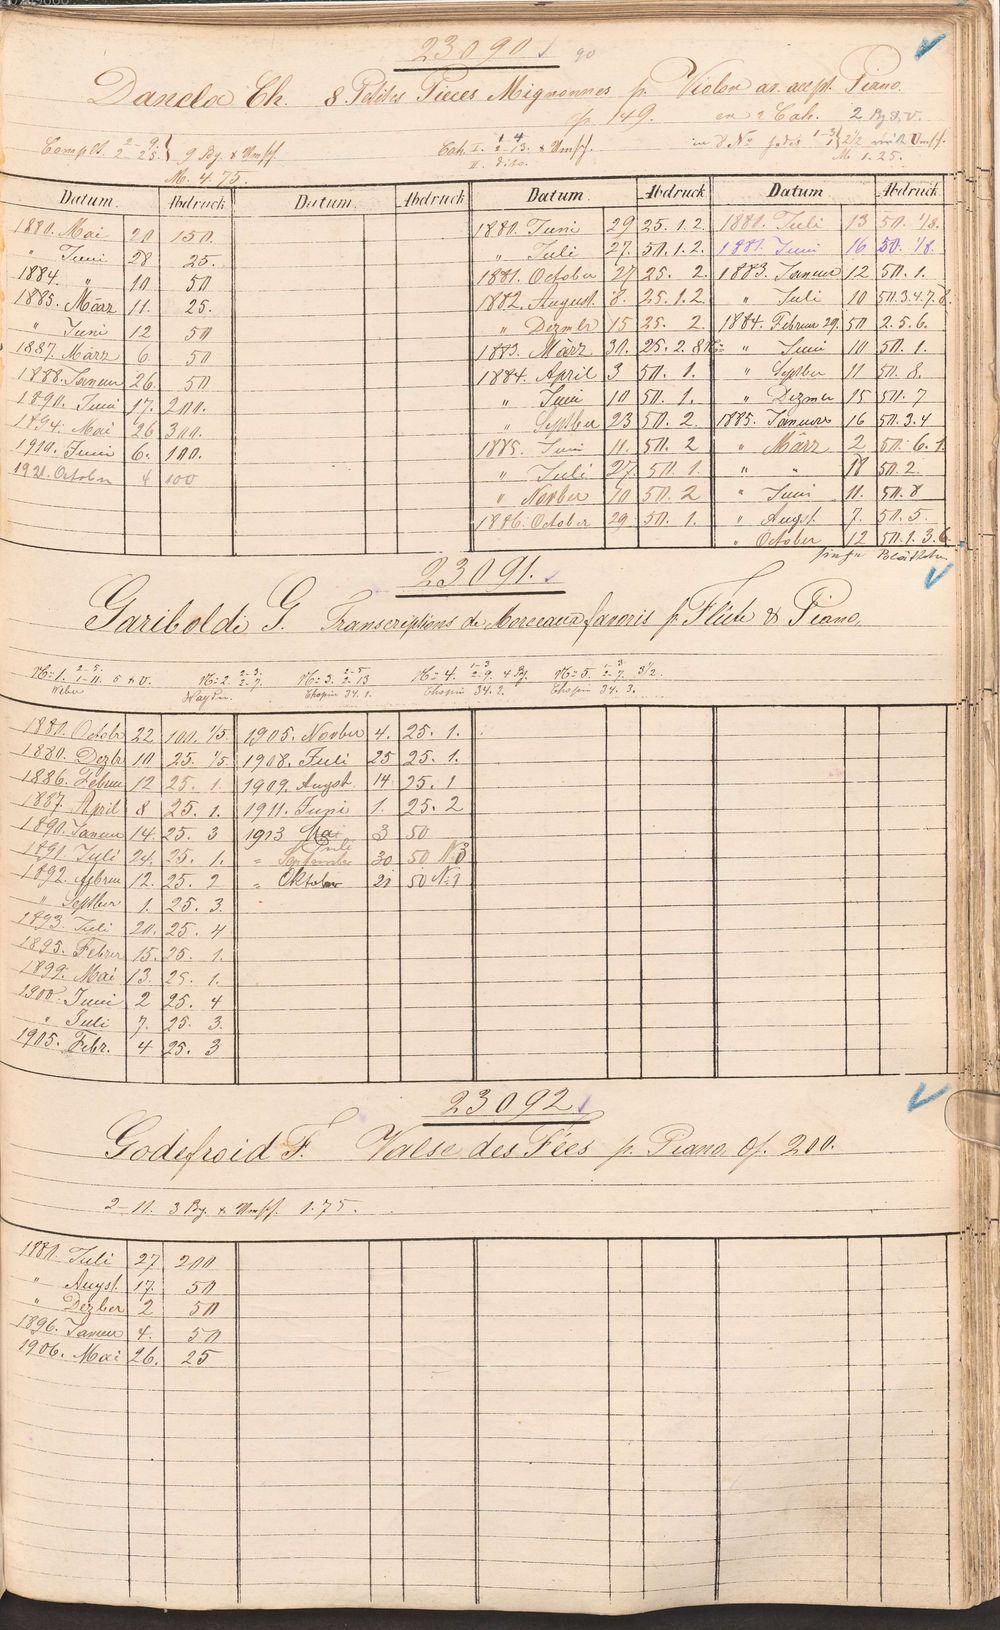 23090. 90
Dancla Ch. 8 Petites Pieces Mignonnes p. Violon av. accpt. Piano.
op. 149. en 2 Cah. 2 Bg. & V.
Complt. 2-9. 2-25. 9 Bg. & Umschl. Cah. I. 1-4. 2-13. & Umschl. in 8 No jedes 1-3 2/2 mit Umschl.
M. 4.75. II. dito. M. 1.25.
Datum. Abdruck Datum. Abdruck Datum. Abdruck Datum Abdruck
1880. Mai 20 150. 1880. Juni 29 25. 1.2. 1880. Juli 13 50. 1/8.
" Juni 28 25. " Juli 27. 50. 1.2. 1881. Juni 16 50. 1/8.
1884. " 10 50 1881. October 27 25. 2. 1883. Januar 12 50. 1.
1885. März 11. 25. 1882. August. 8. 25. 1.2. " Juli 10 50. 3.4.7.8.
" Juni 12 50 " Dezmbr 15 25. 2. 1884. Februar 29. 50 2.5.6.
1887. März 6 50 1883. März 30. 25. 2. " Juni 10 50. 1.
1888. Januar 26. 50 1884. April 3 50. 1. " Septber 11 50. 8.
1890. Juni 17. 200. " Juni 10 50. 1. " Dezmer 15 50. 7
1894. Mai 26 300. " Septber 23 50. 2. 1885. Januar 16 50. 3.4
1910. Juni 6. 100. 1885. Juni 11. 50. 2 " März 2 50. 6. 1.
1921. October 4 100 " Juli 27. 50. 1. " " 18 50. 2.
" Novber 10 50. 2 " Juni 11. 50. 8
1886. October 29. 50. 1. " Augst. 7. 50. 5.
" October 12 50. 1. 3. 6.
23091.
Gariboldi G. Transcriptions de Morceaux favoris p. Flûte & Piano.
No 1. 2-5. 1-11. 5 & V. No 2. 2-3. 2-7. No 3. 2-5 2-13 No 4. 1-3 2-9. 4 Bg. No 5. 1-3. 2-7. 3 1/2.
Weber Haydn. Chopin 34. 1. Chopin 34. 2. Chopin 34. 3.
1880. Octobr 22 100. 1/5 1905. Novber 4. 25. 1.
1880. Dezbr 10 25. 1/5. 1908. Juli 25 25. 1.
1886. Februar 12 25. 1. 1909. Augst. 14 25. 1
1887. April 8 25. 1. 1911. Juni 1. 25. 2
1890. Januar 14. 25. 3 1913 Mai 3 50
1891. Juli 24. 25. 1. " Juli September 30 50 No 3
1892. Febrar 12. 25. 2 " Oktober 21 50 No 1
" Septber 1. 25. 3.
1893. Juli 20. 25. 4
1895. Febrar 15. 25. 1.
1899. Mai 13. 25. 1.
1900. Juni 2 25. 4
" Juli 7. 25. 3.
1905. Febr. 4 25. 3
23092.
Godefroid F. Valse des Fées p. Piano. Op. 200.
2-11. 3 Bg. & Umschl. 1.75.
1880. Juli 27 200
" Augst. 17. 50
" Dezber 2 50
1896. Januar 4. 50
1906. Mai 26. 25